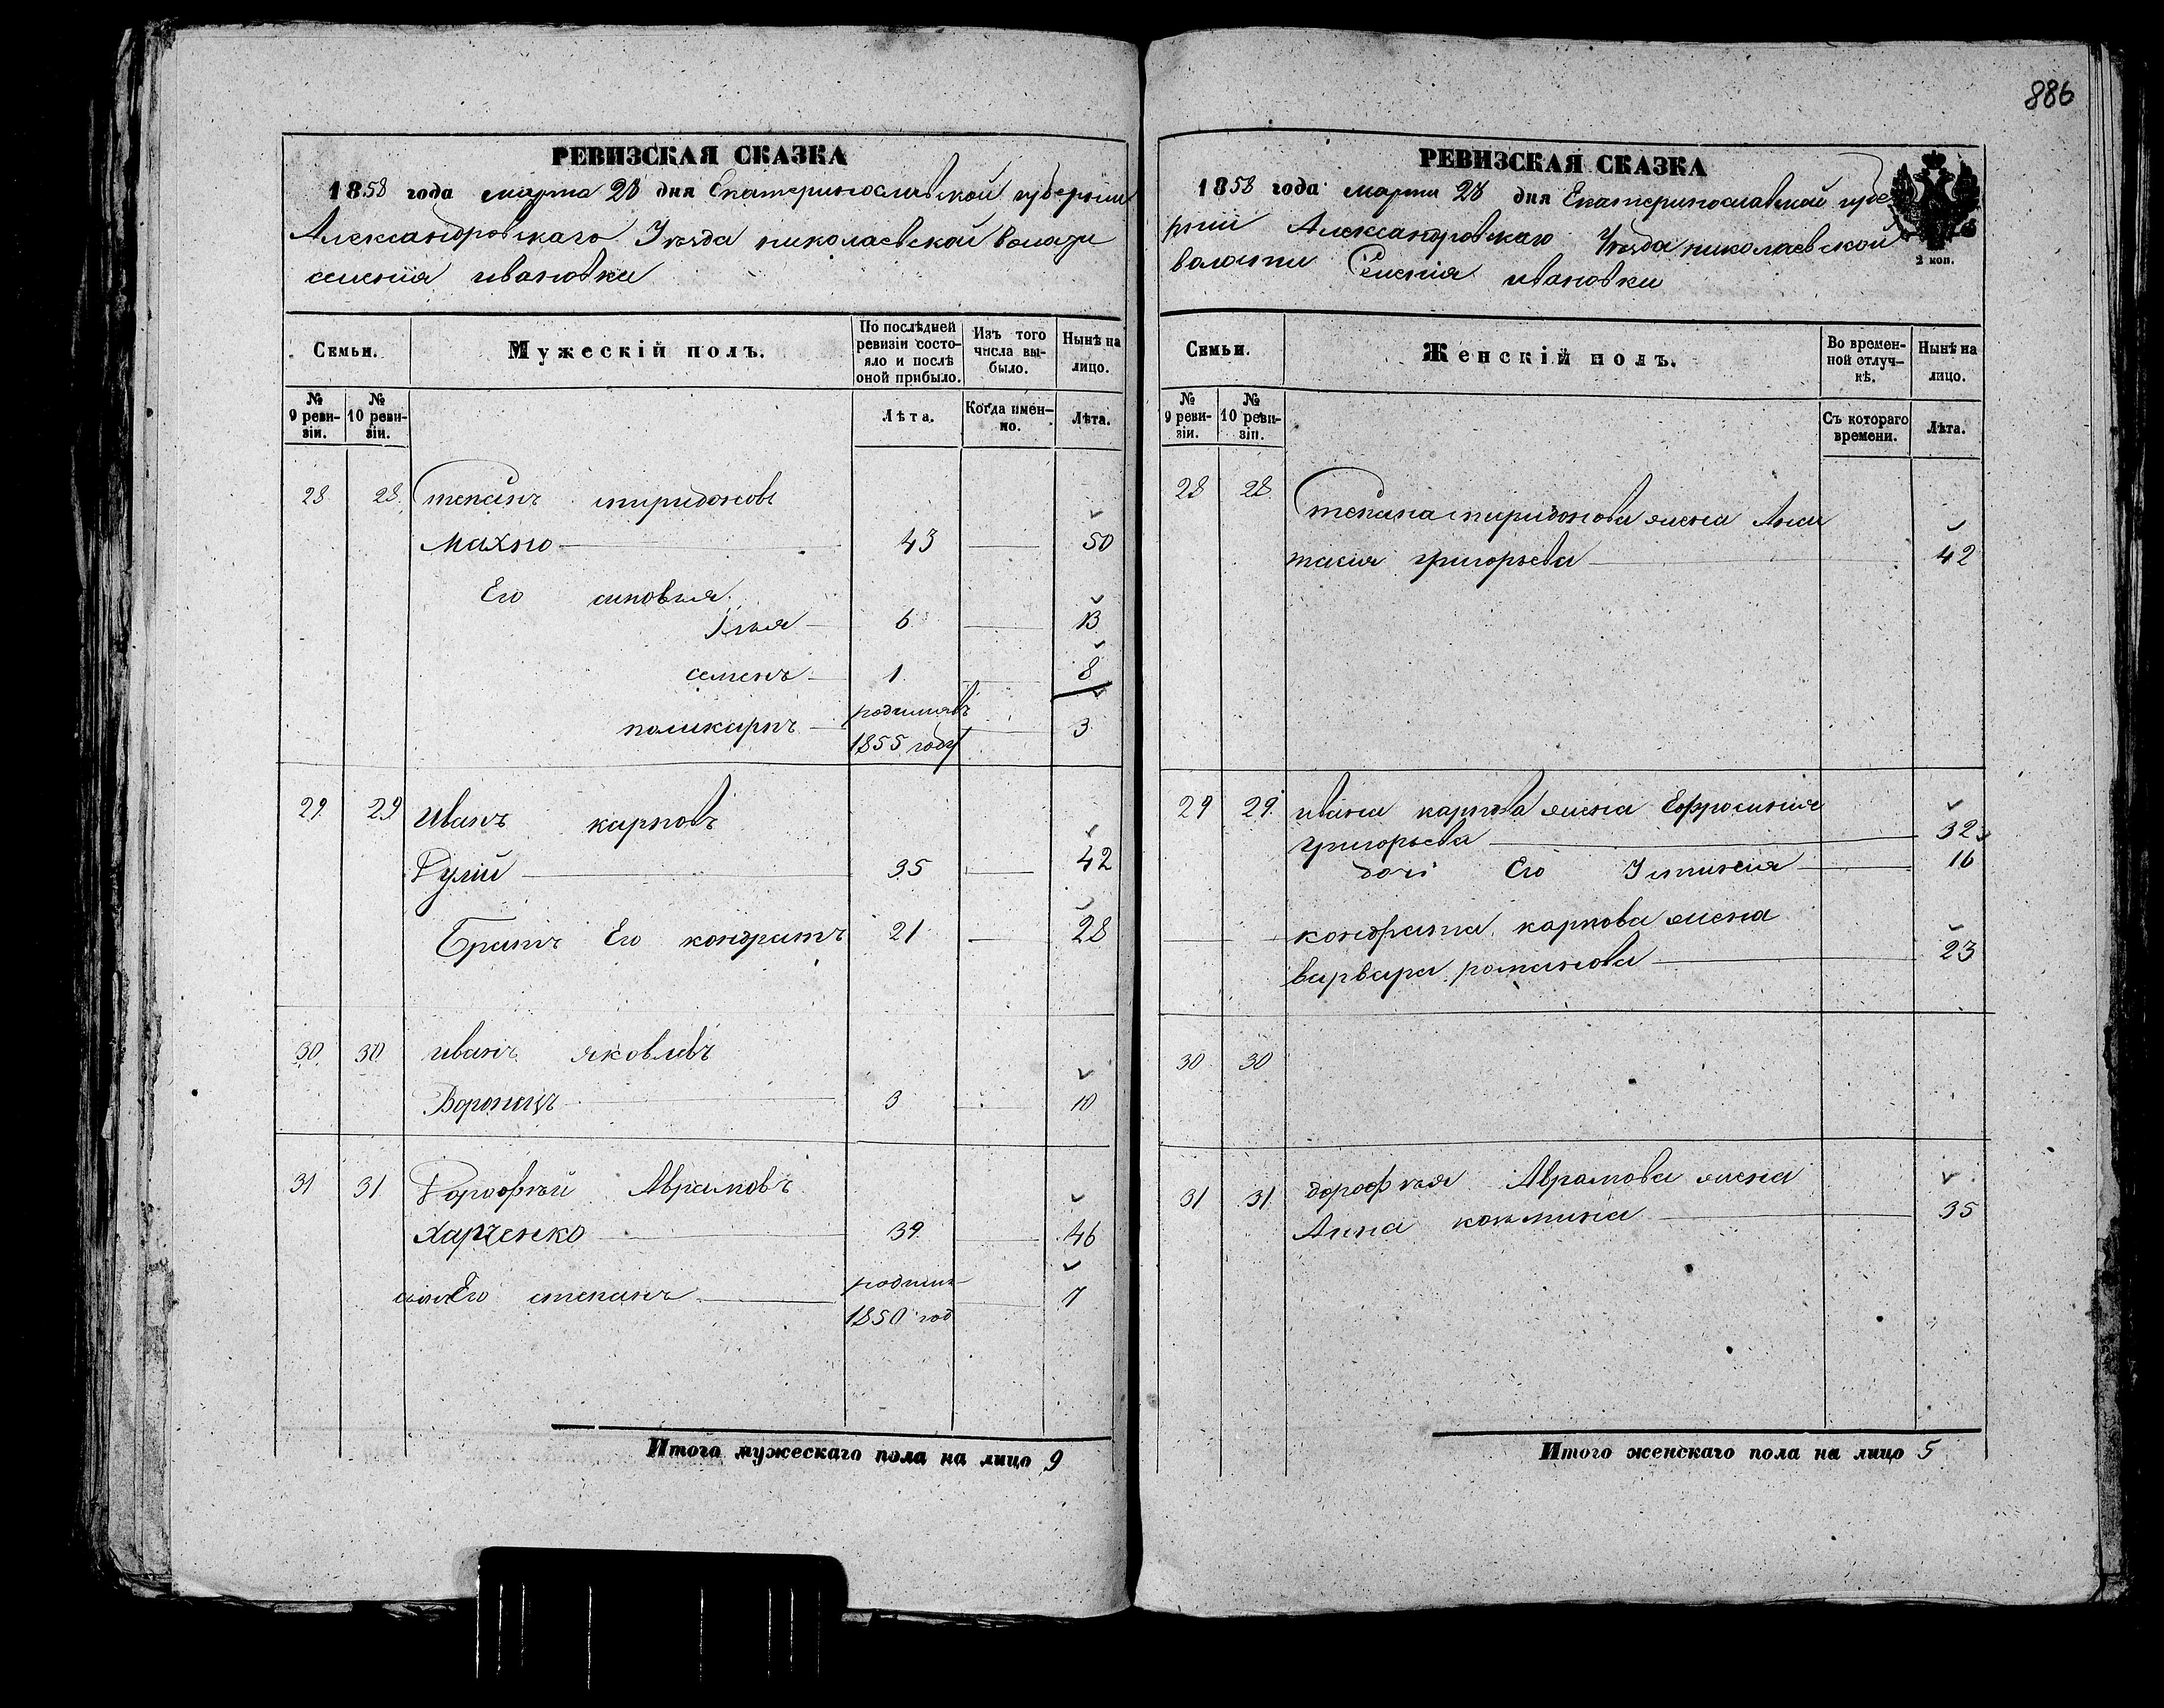 886
РЕВИЗСКАЯ СКАЗКА
1858 года марта 28 дня Екатеринославской губернии
Александровскаго Уѣзда николаевской волости
селенія ивановки
Семьи.
Мужескій полъ.
По послѣдней ревизіи состояло и послѣ оной прибыло.
Изъ того числа выбыло.
Нынѣ на лицо.
№ 9 ревизіи.
№ 10 ревизіи.
Лѣта.
Когда именно.
Лѣта.
28 28 Степанъ спиридоновъ
Махно 43 50
Его синовья
Илья 6 13
семенъ 1 8
поликарпъ родился въ 1855 году 3
29 29 Иванъ карповъ
Дулій 35 42
Братъ Его кондратъ 21 28
30 30 иванъ яковлевъ
3 10
31 31 Дорофѣй Аврамовъ
Харченко 39 46
синъ Его степанъ 1850 год 7
Итого мужескаго пола на лицо 9
РЕВИЗСКАЯ СКАЗКА
1858 года марта 28 дня Екатеринославской губе
рніи Александровскаго Уѣзда николаевской
волости Селенія ивановки
2 коп.
Семьи.
Женскій полъ.
Во временной отлучкѣ.
Нынѣ на лицо.
№ 9 ревизіи.
№ 10 ревизіи.
Съ котораго времени.
Лѣта.
28 28 Степана спиридонова жена Анас
тасия григорьева 42
29 29 ивана карпова жена Ефросиния
григорьева 32
дочь Его 16
кондрата карпова жена
варвара романова 23
30 30
31 31 дорофѣя Аврамова жена
Анна козмина 35
Итого женскаго пола на лицо 5